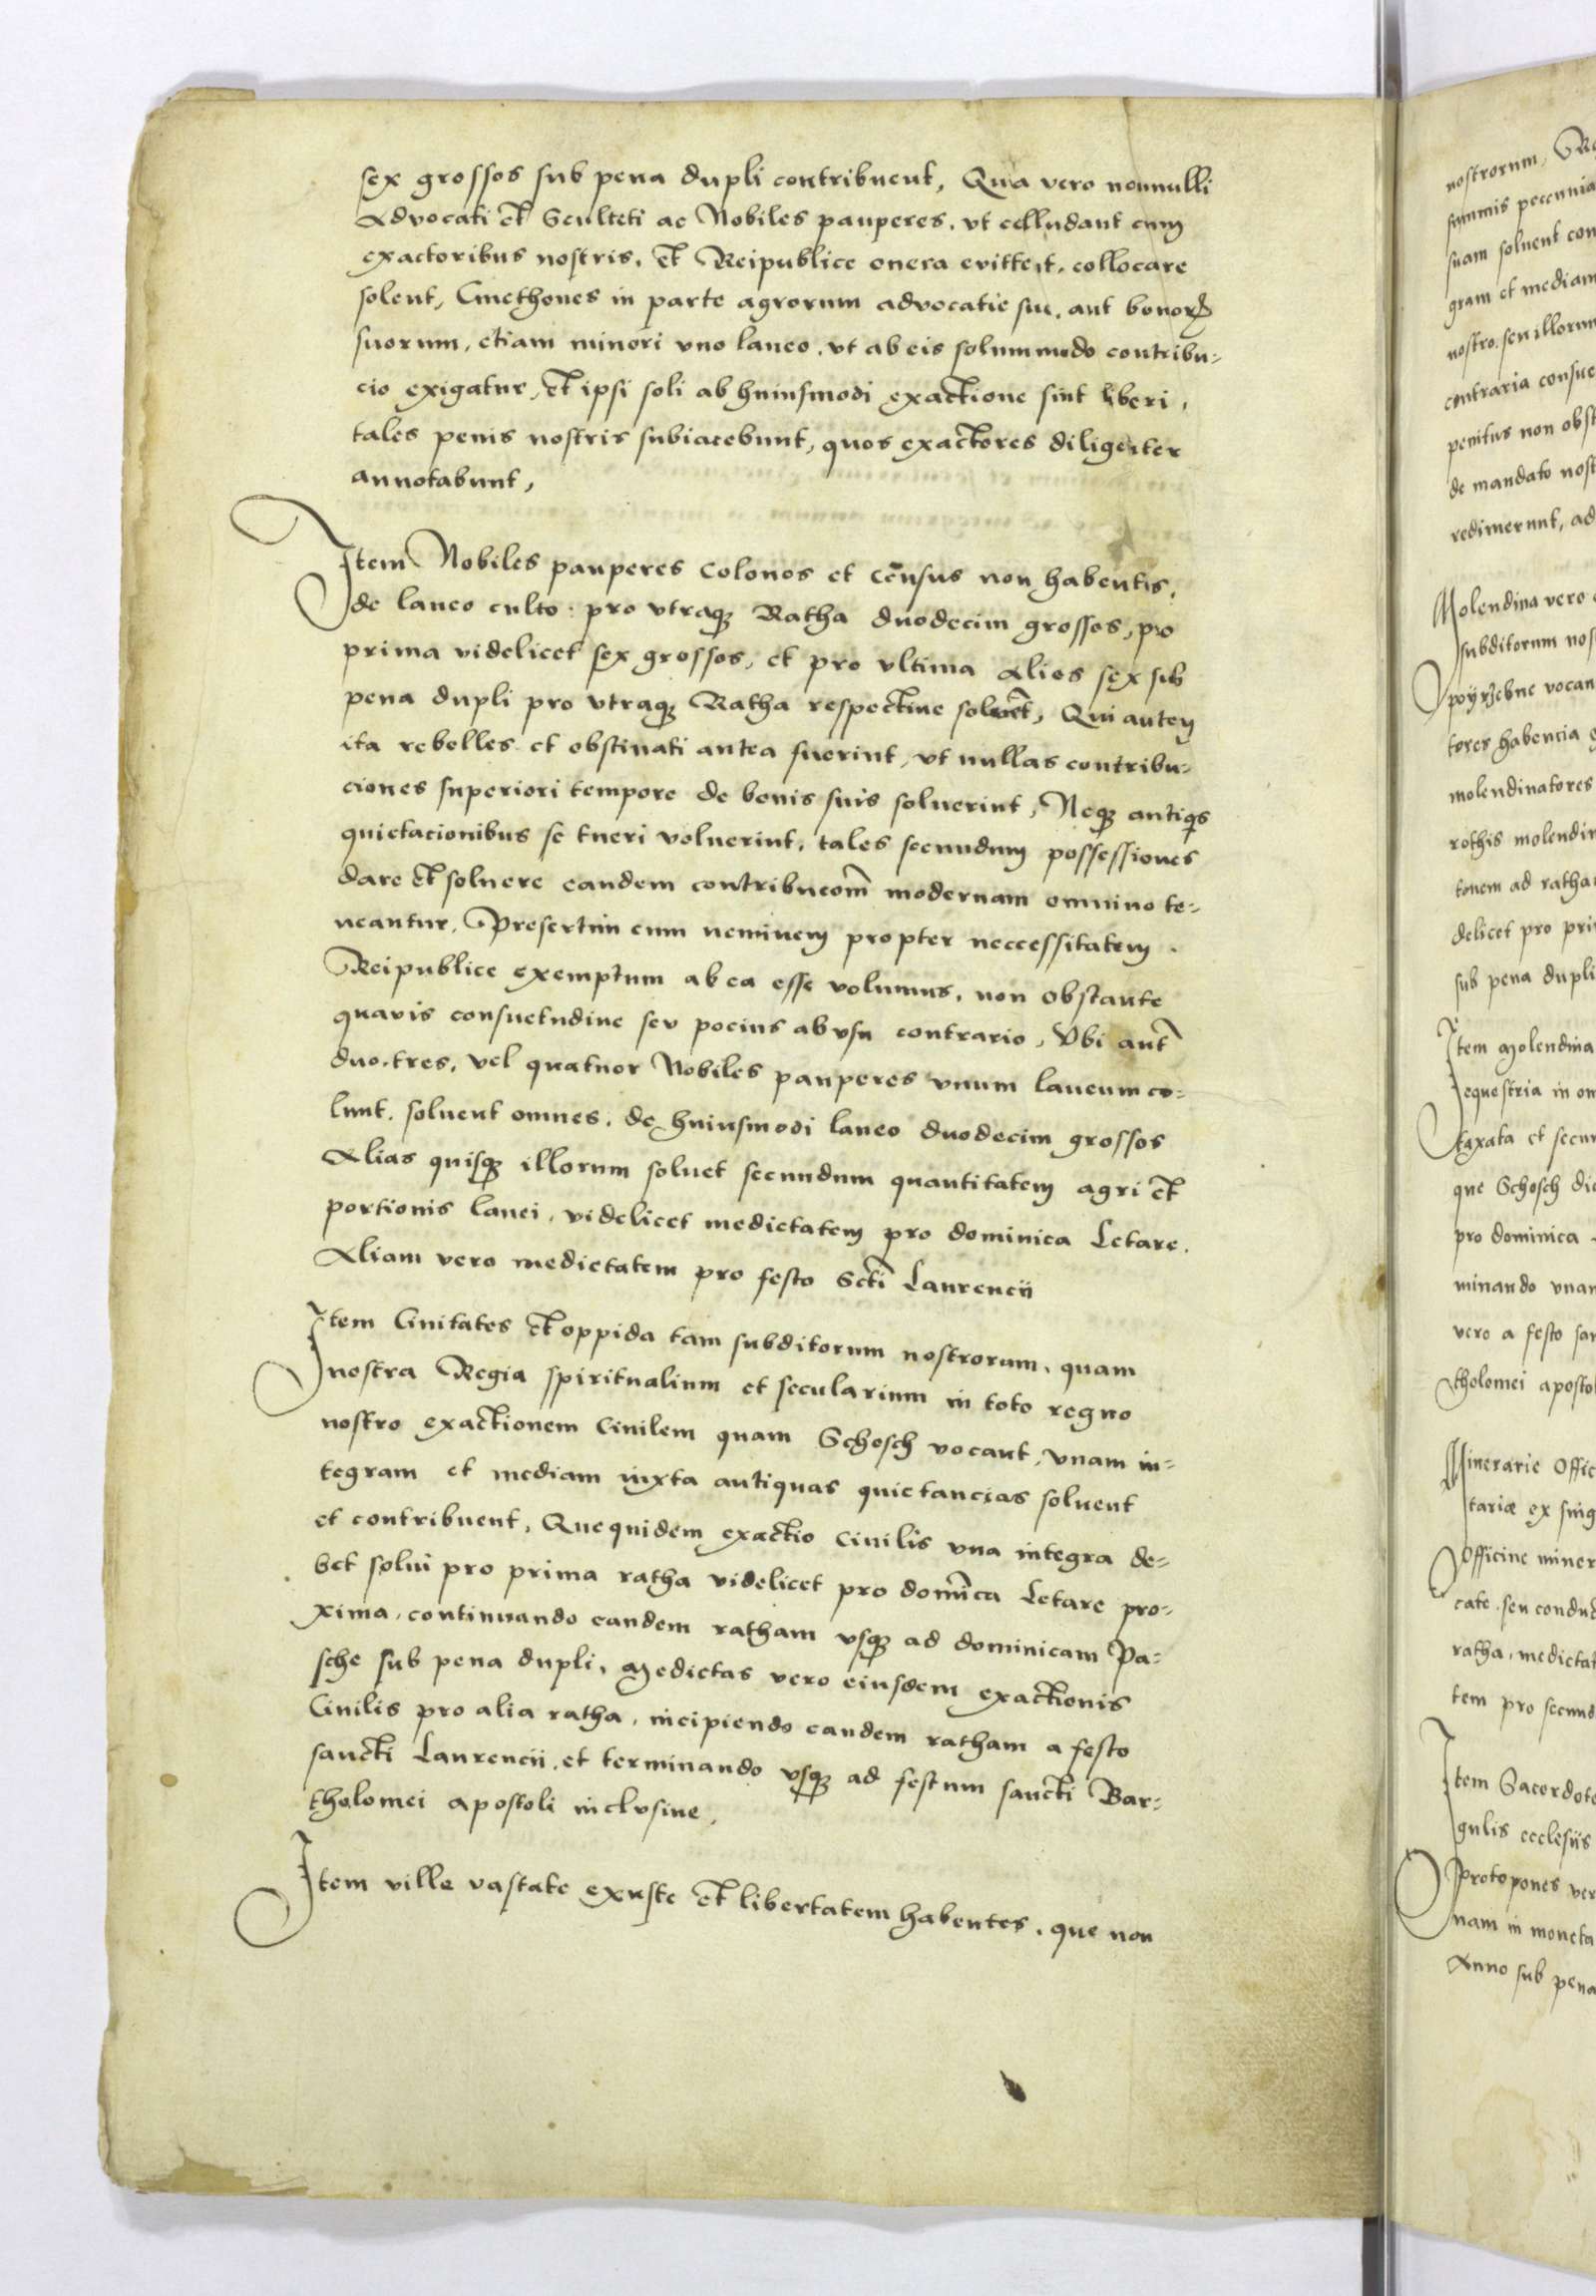 sex grossos sub pena dupli contribuent, Qua vero nonnulli
Advocati et Sculteti ac Nobiles pauperes, ut colludant cum
exactoribus nostris, et Reipublice onera evittent, collocare
solent, Cmethones in parte agrorum advocatie sue, aut bonorꝝ
suorum, etiam minori uno laneo, ut ab eis solummodo contribu=
cio exigatur, et ipsi soli ab huiusmodi exactione sint liberi,
tales penis nostris subiacebunt, quos exactores diligenter
annotabunt,
Item Nobiles pauperes colonos et census non habentes,
de laneo culto pro utraqꝫ Ratha duodecim grossos, pro
prima videlicet sex grossos, et pro ultima Alios sex sub
pena dupli pro utraqꝫ Ratha respective solvet, Qui autem
ita rebelles et obstinati antea fuerint, ut nullas contribu=
ciones superiori tempore de bonis suis solverint, Neqꝫ antiqis
quietacionibus se tueri voluerint, tales secundum possessiones
dare et solvere eandem contribucom̄ modernam omnino te=
neantur, Presertim cum neminem propter neccessitatem
Reipublice exemptum ab ea esse volumus, non obstante
quavis consuetudine seu pocius abusu contrario, Ubi aut̄
duo, tres, vel quatuor Nobiles pauperes unum laneum co=
lunt, solvent omnes, de huiusmodi laneo duodecim grossos
Alias quisqꝫ illorum solvet secundum quantitatem agri et
portionis lanei, videlicet medietatem pro dominica Letare.
Aliam vero medietatem pro festo Scti Laurencii
Item Civitates et oppida tam subditorum nostrorum, quam
nostra Regia spiritualium et secularium in toto regno
nostro exactionem Civilem quam Schosch vocant, unam in=
tegram et mediam iuxta antiquas quietancias solvent
et contribuent, Que quidem exactio Civilis una integra de=
bet solui pro prima ratha videlicet pro domīca Letare pro=
xima, continuando eandem ratham usqꝫ ad dominicam Pa=
sche sub pena dupli, Medietas vero eiusdem exactionis
Civilis pro alia ratha, incipiendo eandem ratham a festo
sancti Laurencii, et terminando usqꝫ ad festum sancti Bar=
tholomei apostoli inclusive,
Item ville vastate exuste et libertatem habentes, que non
nostrorum,
summis pecunia
suam solvent con
gram et mediam
nostro, seu illorum
contraria consue
penitus non obst
de mandato nost
redimerunt, ad
Molendina vero
subditorum nos
poyrzebne vocan
tores habencia
molendinatores
rothis molendin
tonem ad ratha
delicet pro pri
sub pena dupli
Item Molendina
equestria in om
taxata et secun
que Schosch di
pro dominica
minando unam
vero a festo san
tholomei aposto
Minerarie Offic
tariæ ex sing
Officine miner
cate, seu conduc
ratha, medietat
tem pro secund
Item Sacerdote
gulis ecclesiis
protopones ver
nam in moneta
Anno sub pena